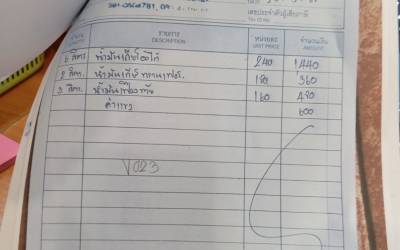 เลขประจำตัวผู้เสียภาษี
รายการ
DESCRIPTION
หน่วยละ
UNIT PRICE
จำนวนเงิน
AMOUNT
6 ลิตร น้ำมันเกียร์ออโต้ 240 1440
2 ลิตร. น้ำมันเกียร์ 180 360
3 ลิตร. น้ำมันเฟืองท้าย 160 480
ค่าแรง 600
V023